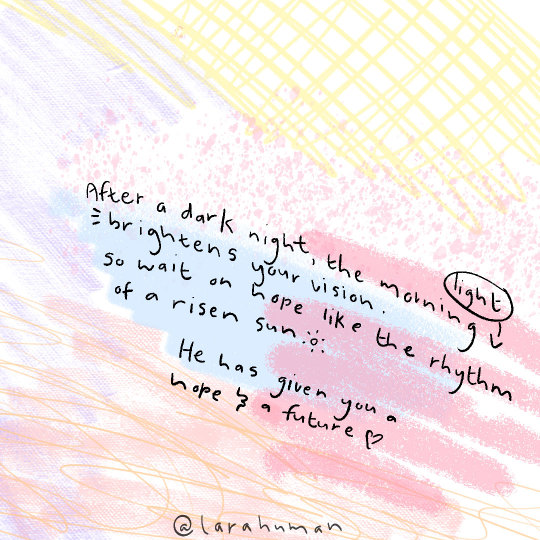 After a dark night, the morning light
brightens your vision.
so wait on hope like the rhythm
of a risen sun.
He has given you a
hope & a future
@larahuman